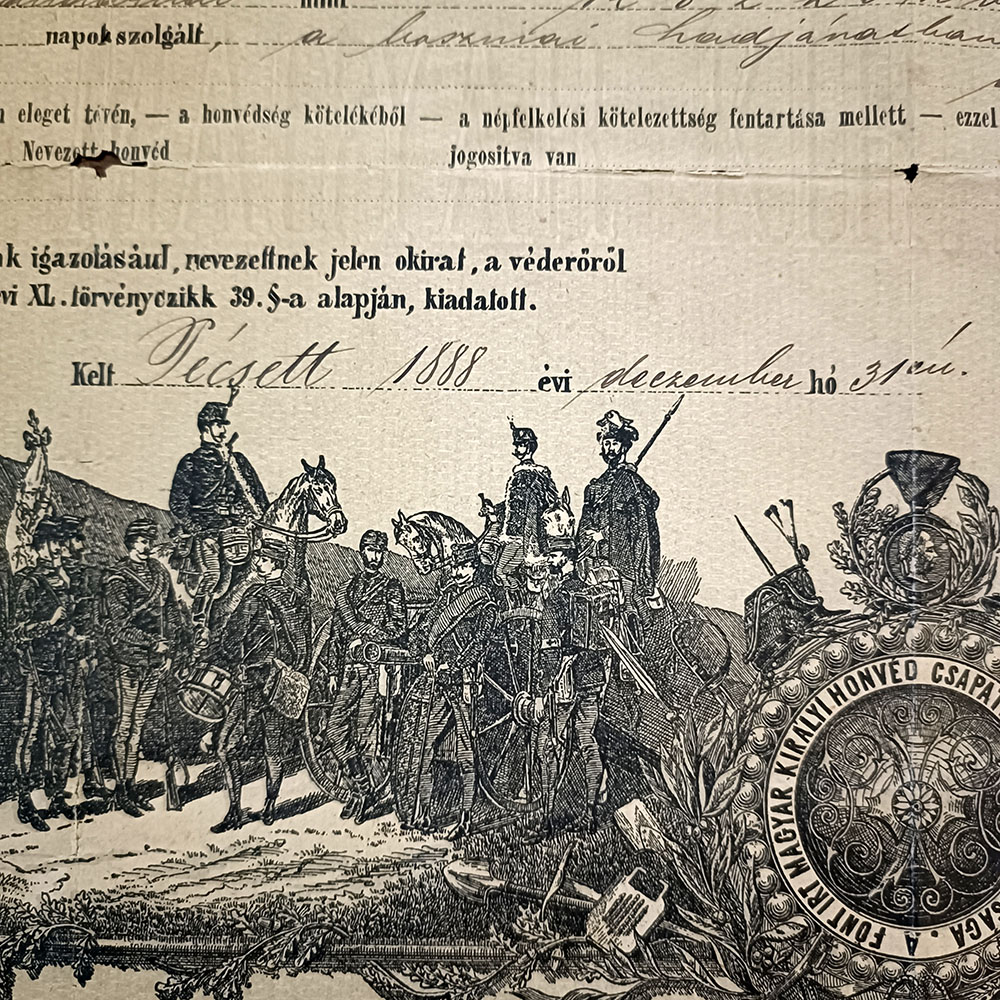 mint
napok szolgált, a boszniai hadjáratban
eleget tévén, — a honvédség kötelékéből — a népfelkelési kötelezettség fentartása mellett — ezzel
Nevezett honvéd jogositva van
igazolásáúl, nevezettnek jelen okirat, a véderőről
vi XL. törvényczikk 39. §-a alapján, kiadatott.
Kelt Pécsett 1888 évi deczember hó 31én.
A FONT IRT MAGYAR KIRÁLYI HONVÉD CSAPAT